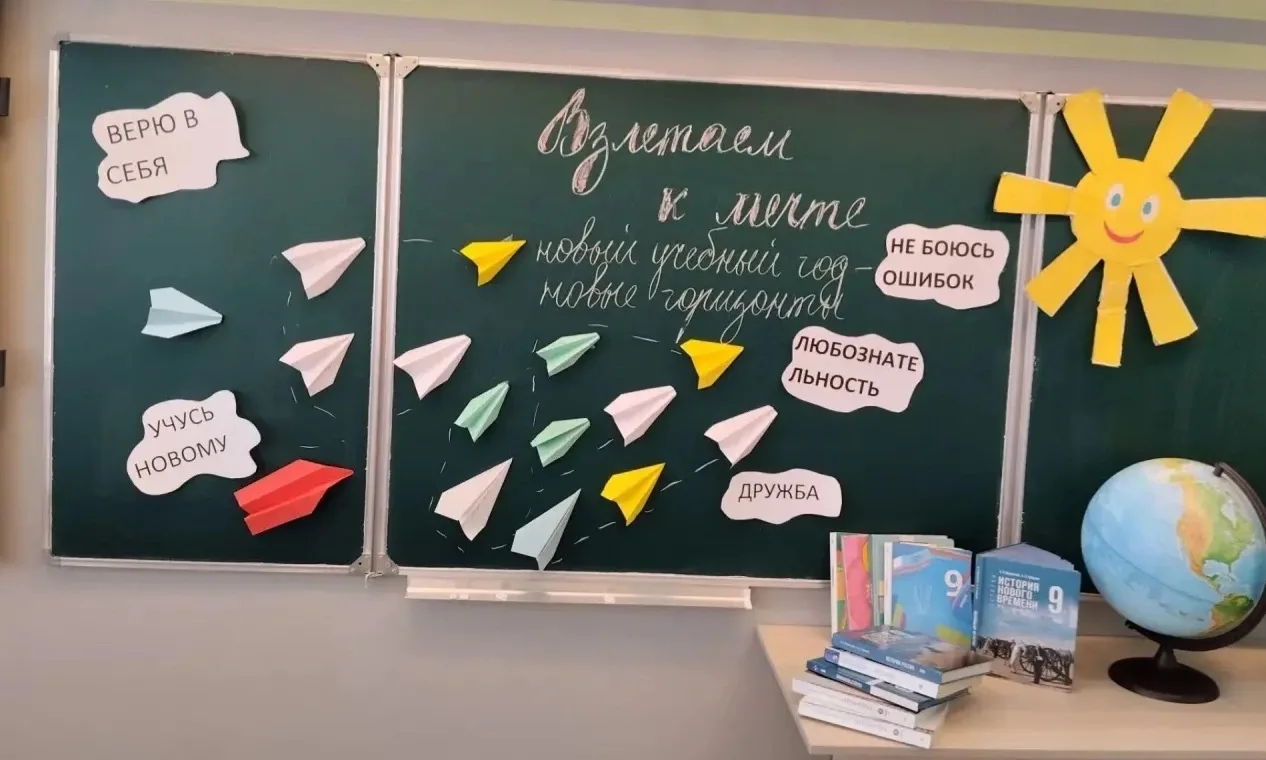 ВЕРЮ В
СЕБЯ
УЧУСЬ
НОВОМУ
Взлетаем
к мечте
новый учебный год -
новые горизонты
НЕ БОЮСЬ
ОШИБОК
ЛЮБОЗНАТЕ
ЛЬНОСТЬ
ДРУЖБА
9
ИСТОРИЯ
НОВОГО
ВРЕМЕНИ
9